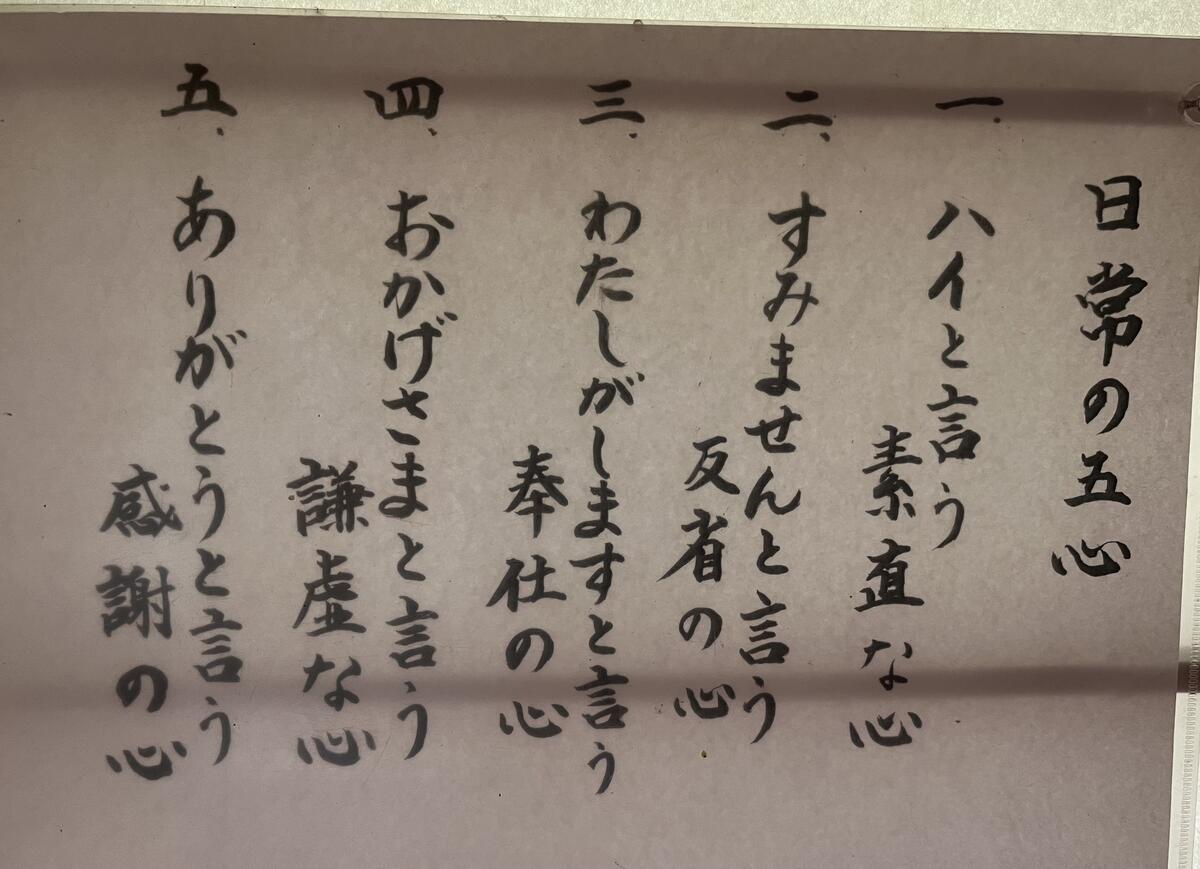 日常の五心
一、ハイと言う
素直な心
二、すみませんと言う
反省の心
三、わたしがしますと言う
奉仕の心
四、おかげさまと言う
謙虚な心
五、ありがとうと言う
感謝の心